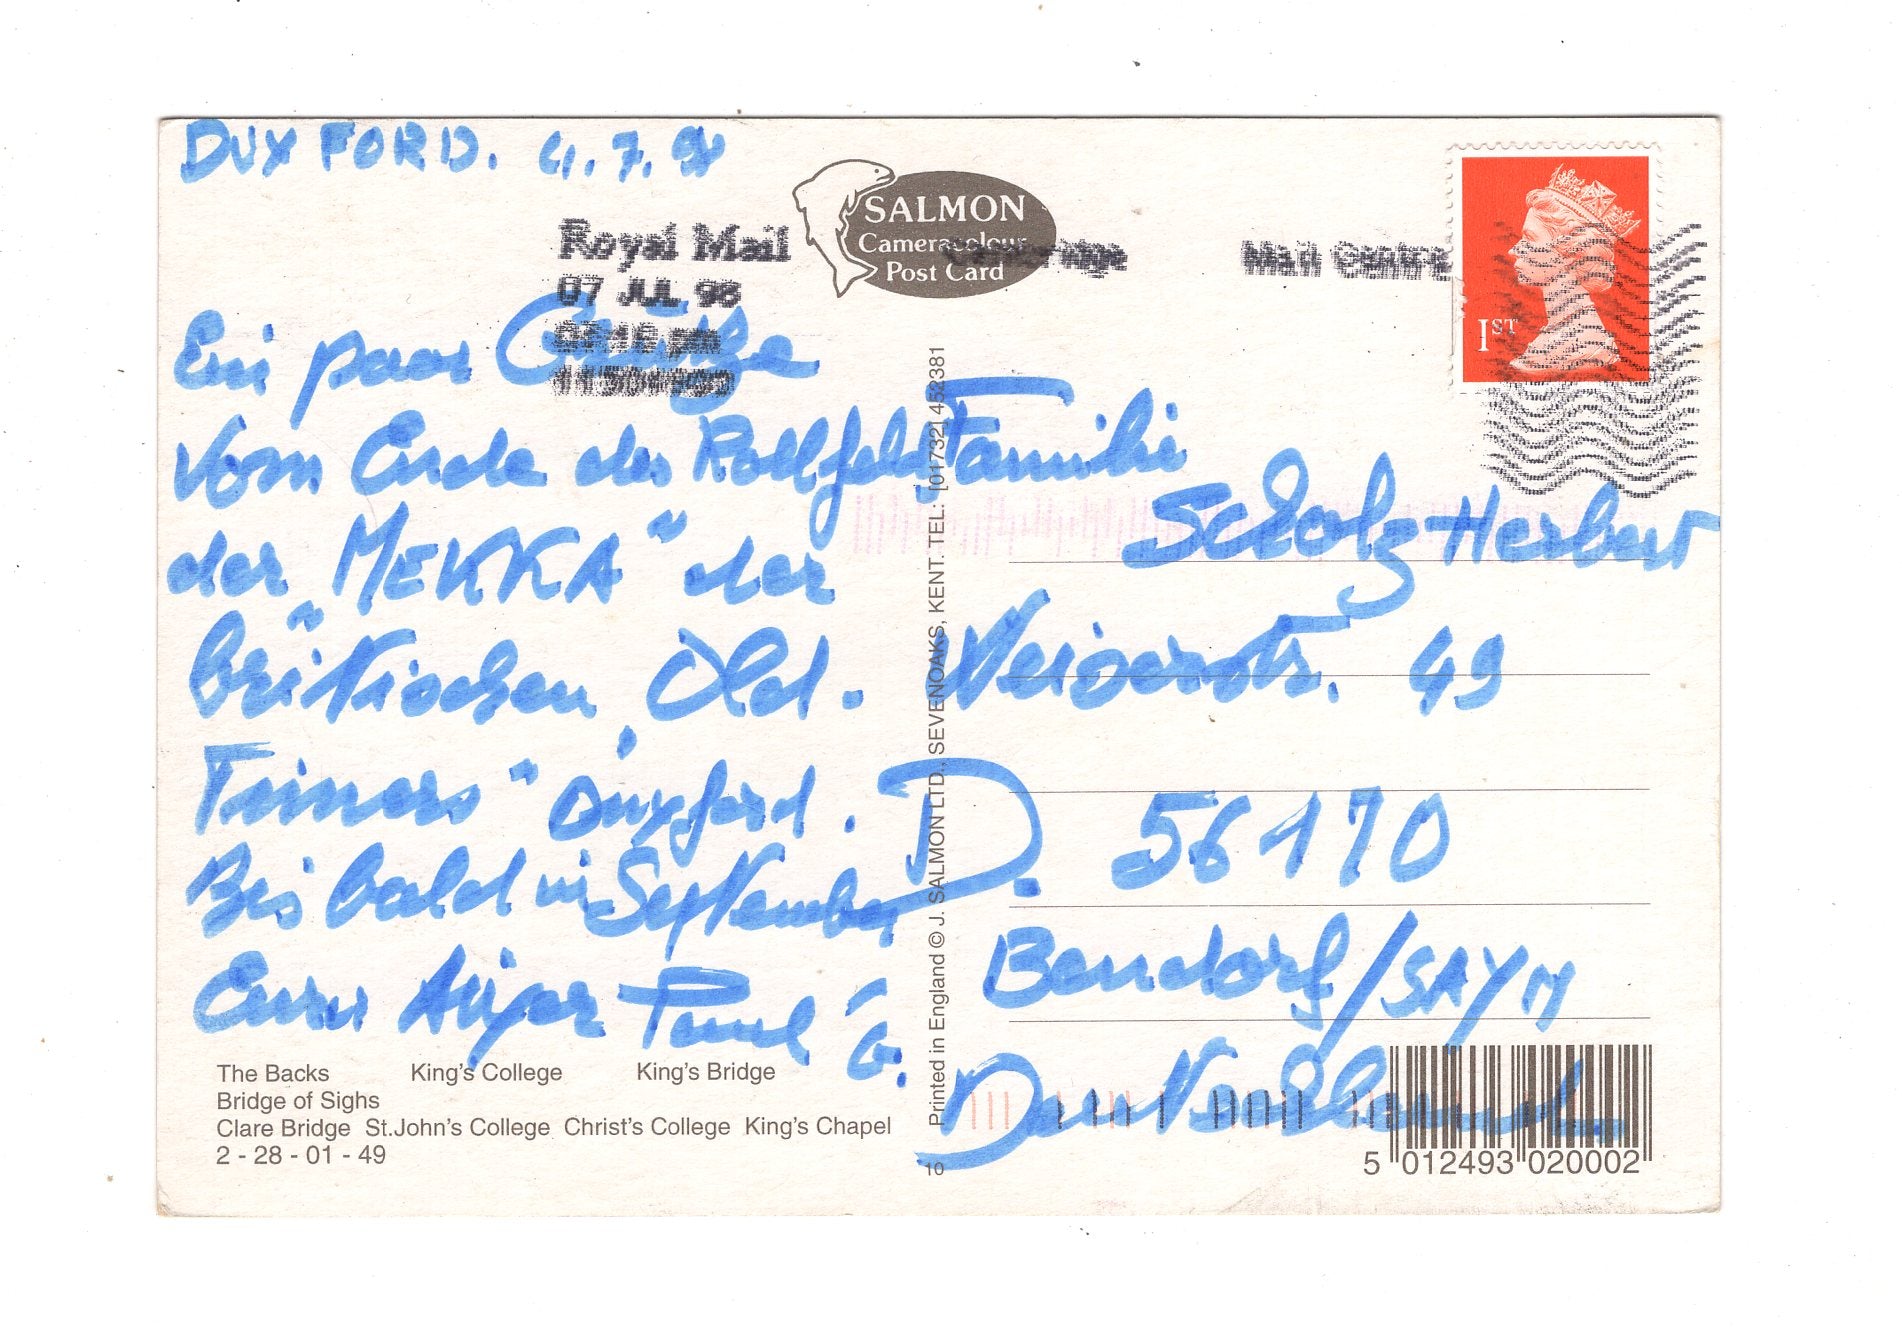 DUXFORD. 4.7.98
SALMON
Cameracolour
Post Card
Royal Mail
07 JUL 98
Mail Centre
1ST
Ein paar Grüße
vom Ende des Rollfeld
der "MEKKA" der
britischen "Old.
Timers" Duxford.
Bis bald im September
Euer Paul G.
Familie
Scholz-Herber
49
D. 56170
Bendorf/SAYN
The Backs King's College King's Bridge
Bridge of Sighs
Clare Bridge St.John's College Christ's College King's Chapel
2 - 28 - 01 - 49
Printed in England © J. SALMON LTD., SEVENOAKS, KENT. TEL: [01732] 452381
10
5 012493 020002